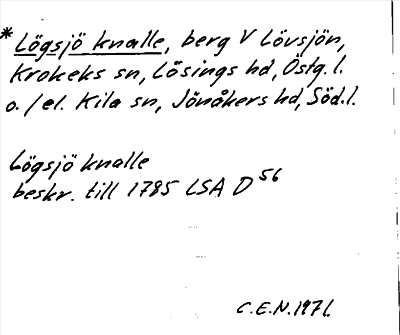 * Lögsjö knalle, berg V Lövsjön,
Krokeks sn, Lösings hd, Östg. l.
o. / el. Kila sn, Jönåkers hd, Söd. l.
Lögsjö knalle
beskr. till 1785 LSA D 56
C.E.N. 1971.